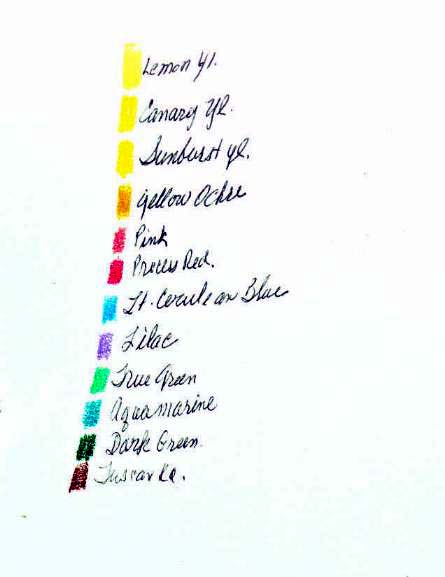 Lemon Yl.
Canary Yl.
Sunburst yl.
yellow Ochre
Pink
Process Red.
Lt. Cerulean Blue
Lilac
True Green
Aquamarine
Dark Green